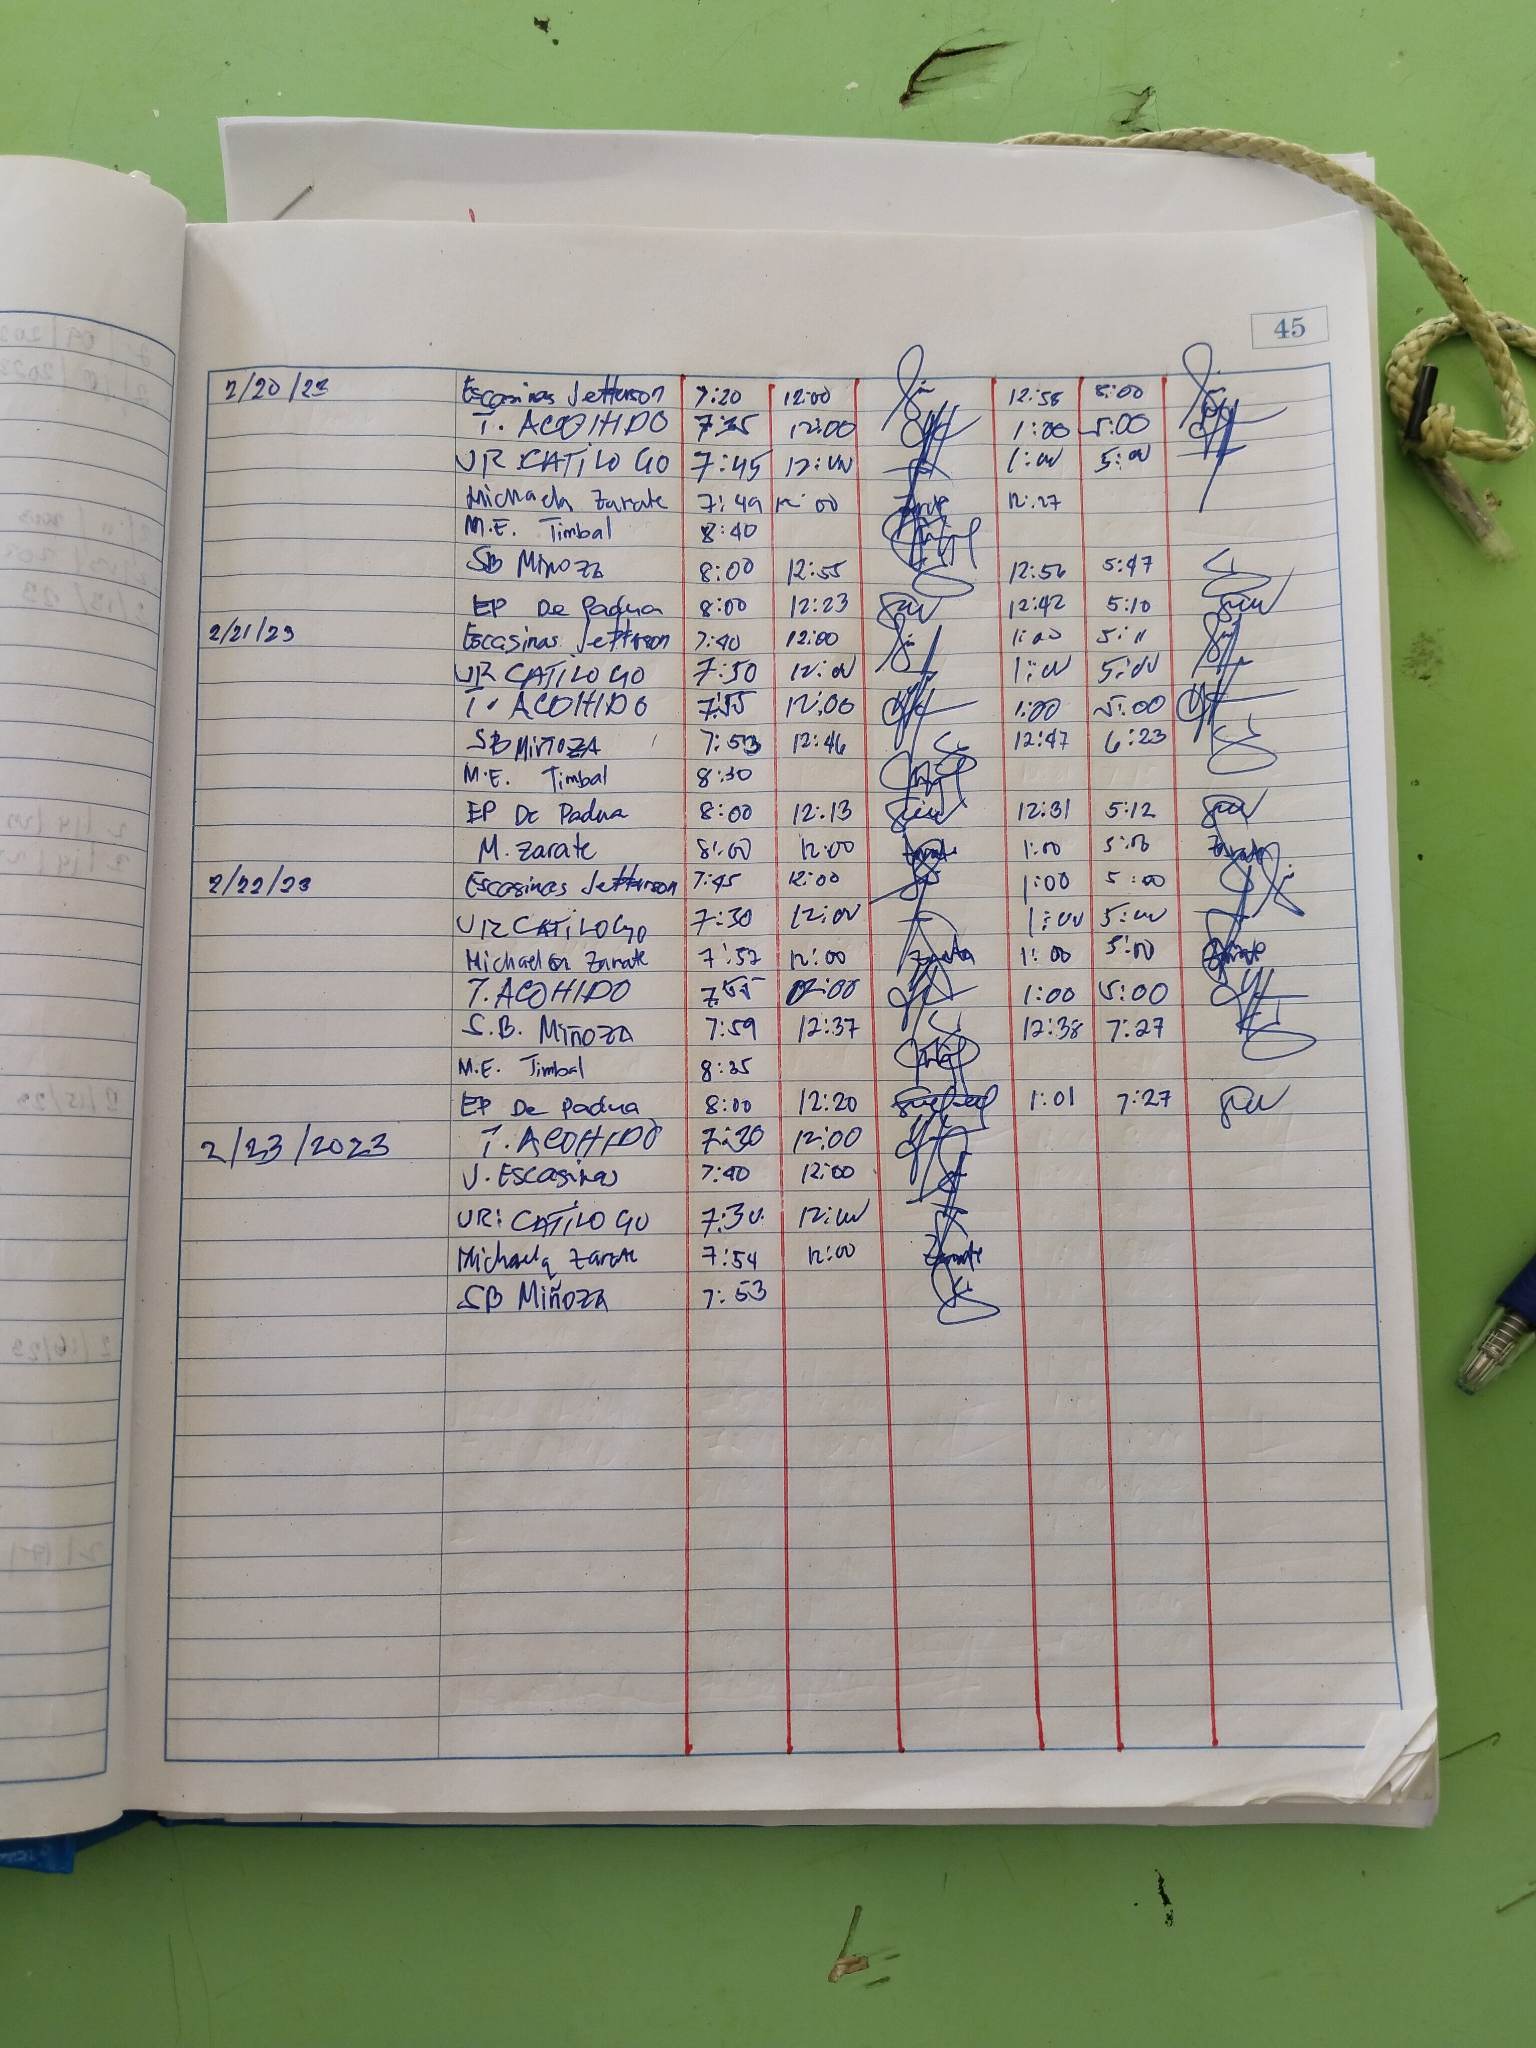 45
2/20/23 Escasinas Jefferson 7:20 12:00 12:58 5:00
T. ACOHIDO 7:35 12:00 1:00 5:00
UR CATILOGO 7:45 12:00 1:00 5:00
Michaela Zarate 7:49 12:00 Zarate 12:27
M.E. Timbal 8:40
SB MIÑOZA 8:00 12:55 12:56 5:47
EP De Padua 8:00 12:23 12:42 5:10
2/21/23 Escasinas Jefferson 7:40 12:00 1:00 5:11
UR CATILOGO 7:50 12:00 1:00 5:00
T. ACOHIDO 7:55 12:00 1:00 5:00
SB MIÑOZA 7:53 12:46 12:47 6:23
M.E. Timbal 8:30
EP De Padua 8:00 12:13 12:31 5:12
M. Zarate 8:00 12:00 Zarate 1:00 5:00 Zarate
2/22/23 Escasinas Jefferson 7:45 12:00 1:00 5:00
UR CATILOGO 7:30 12:00 1:00 5:00
Michaela Zarate 7:52 12:00 Zarate 1:00 5:00 Zarate
T. ACOHIDO 7:55 12:00 1:00 5:00
S.B. MIÑOZA 7:59 12:37 12:38 7:27
M.E. Timbal 8:35
EP De Padua 8:00 12:20 1:01 7:27
2/23/2023 T. ACOHIDO 7:30 12:00
J. Escasinas 7:40 12:00
UR: CATILOGO 7:30 12:00
Michaela Zarate 7:54 12:00 Zarate
SB MIÑOZA 7:53